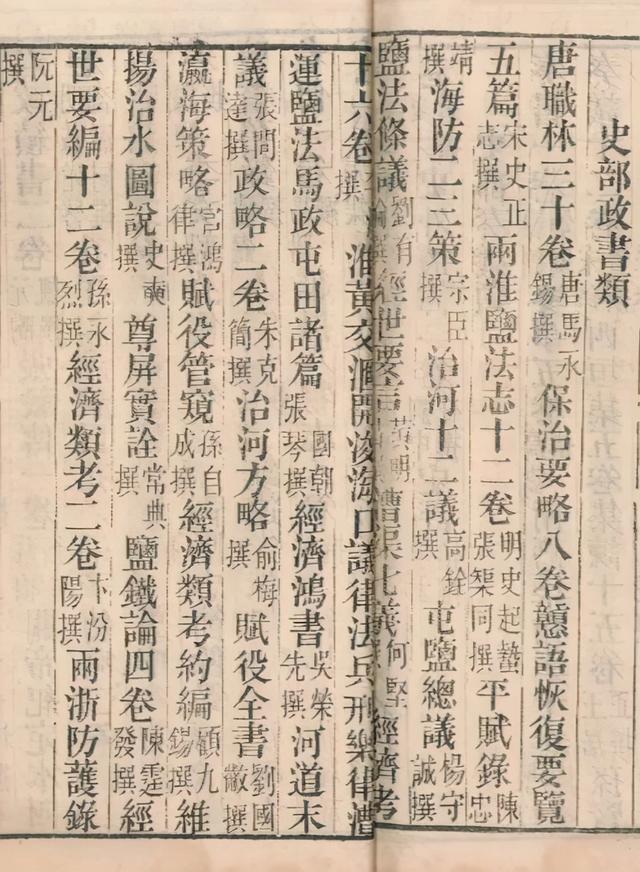 史部政書類
唐職林三十卷唐馬永錫撰保治要略八卷戇語恢復要覽
五篇宋史正志撰兩淮鹽法志十二卷明史起蟄張榘同撰平賦錄陳忠
靖撰海防二三策宗臣撰治河十二議高銓撰屯鹽總議楊守誠撰
鹽法條議劉有綸撰經世要言黃明漕渠七議何堅經濟考
十六卷撰淮黃交匯開浚海口議律法兵刑樂律漕
運鹽法馬政屯田諸篇國朝張琴撰經濟鴻書吳榮先撰河道末
議張問達撰政略二卷朱克簡撰治河方略俞梅撰賦役全書劉國黻撰
瀛海策略宮鴻律撰賦役管窺孫自成撰經濟類考約編顧九錫撰維
揚治水圖說史奭撰尊屏實詮常典撰鹽鐵論四卷陳霆發撰經
世要編十二卷孫永烈撰經濟類考二卷卞汾陽撰兩浙防護錄
阮元撰